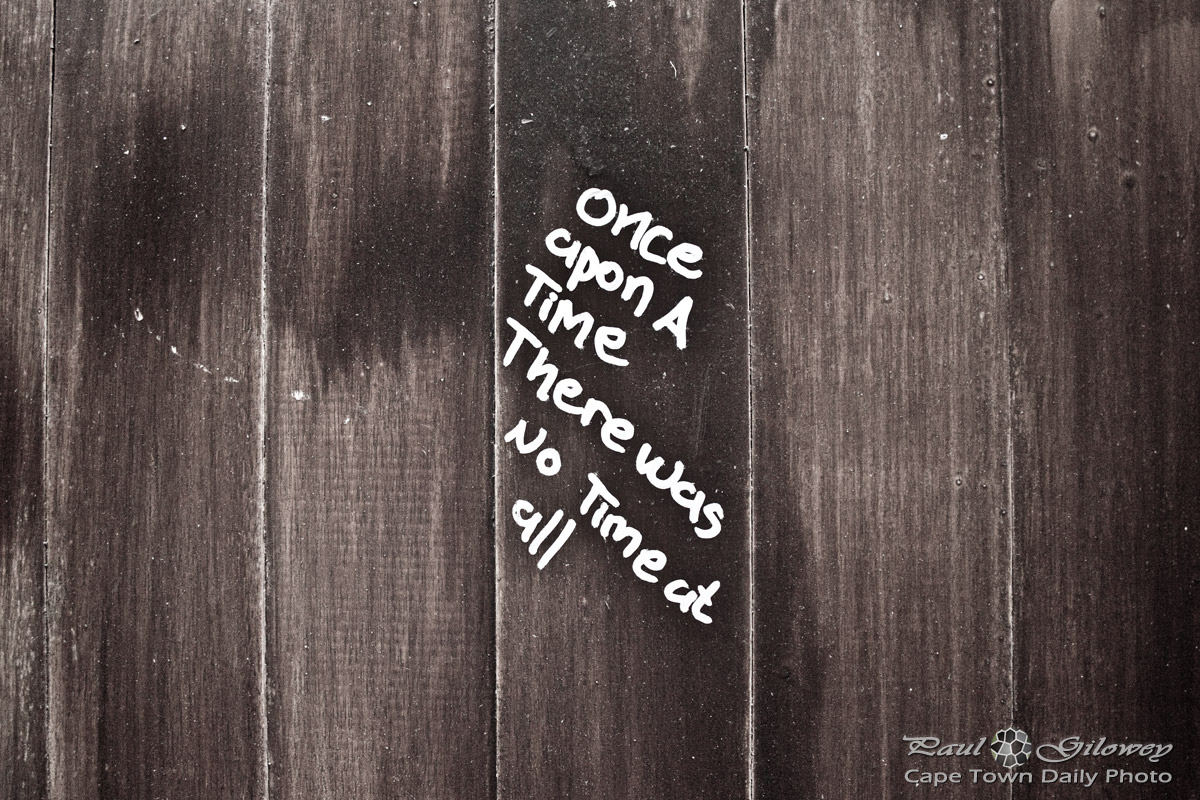 Once
apon A
Time
There was
No Time at
all
Paul Gilowey
Cape Town Daily Photo